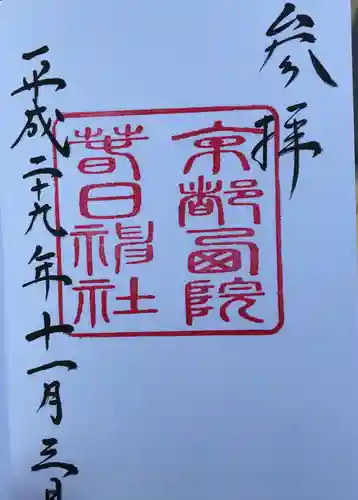 参拝
京都西院
春日神社
平成二十九年十一月三日